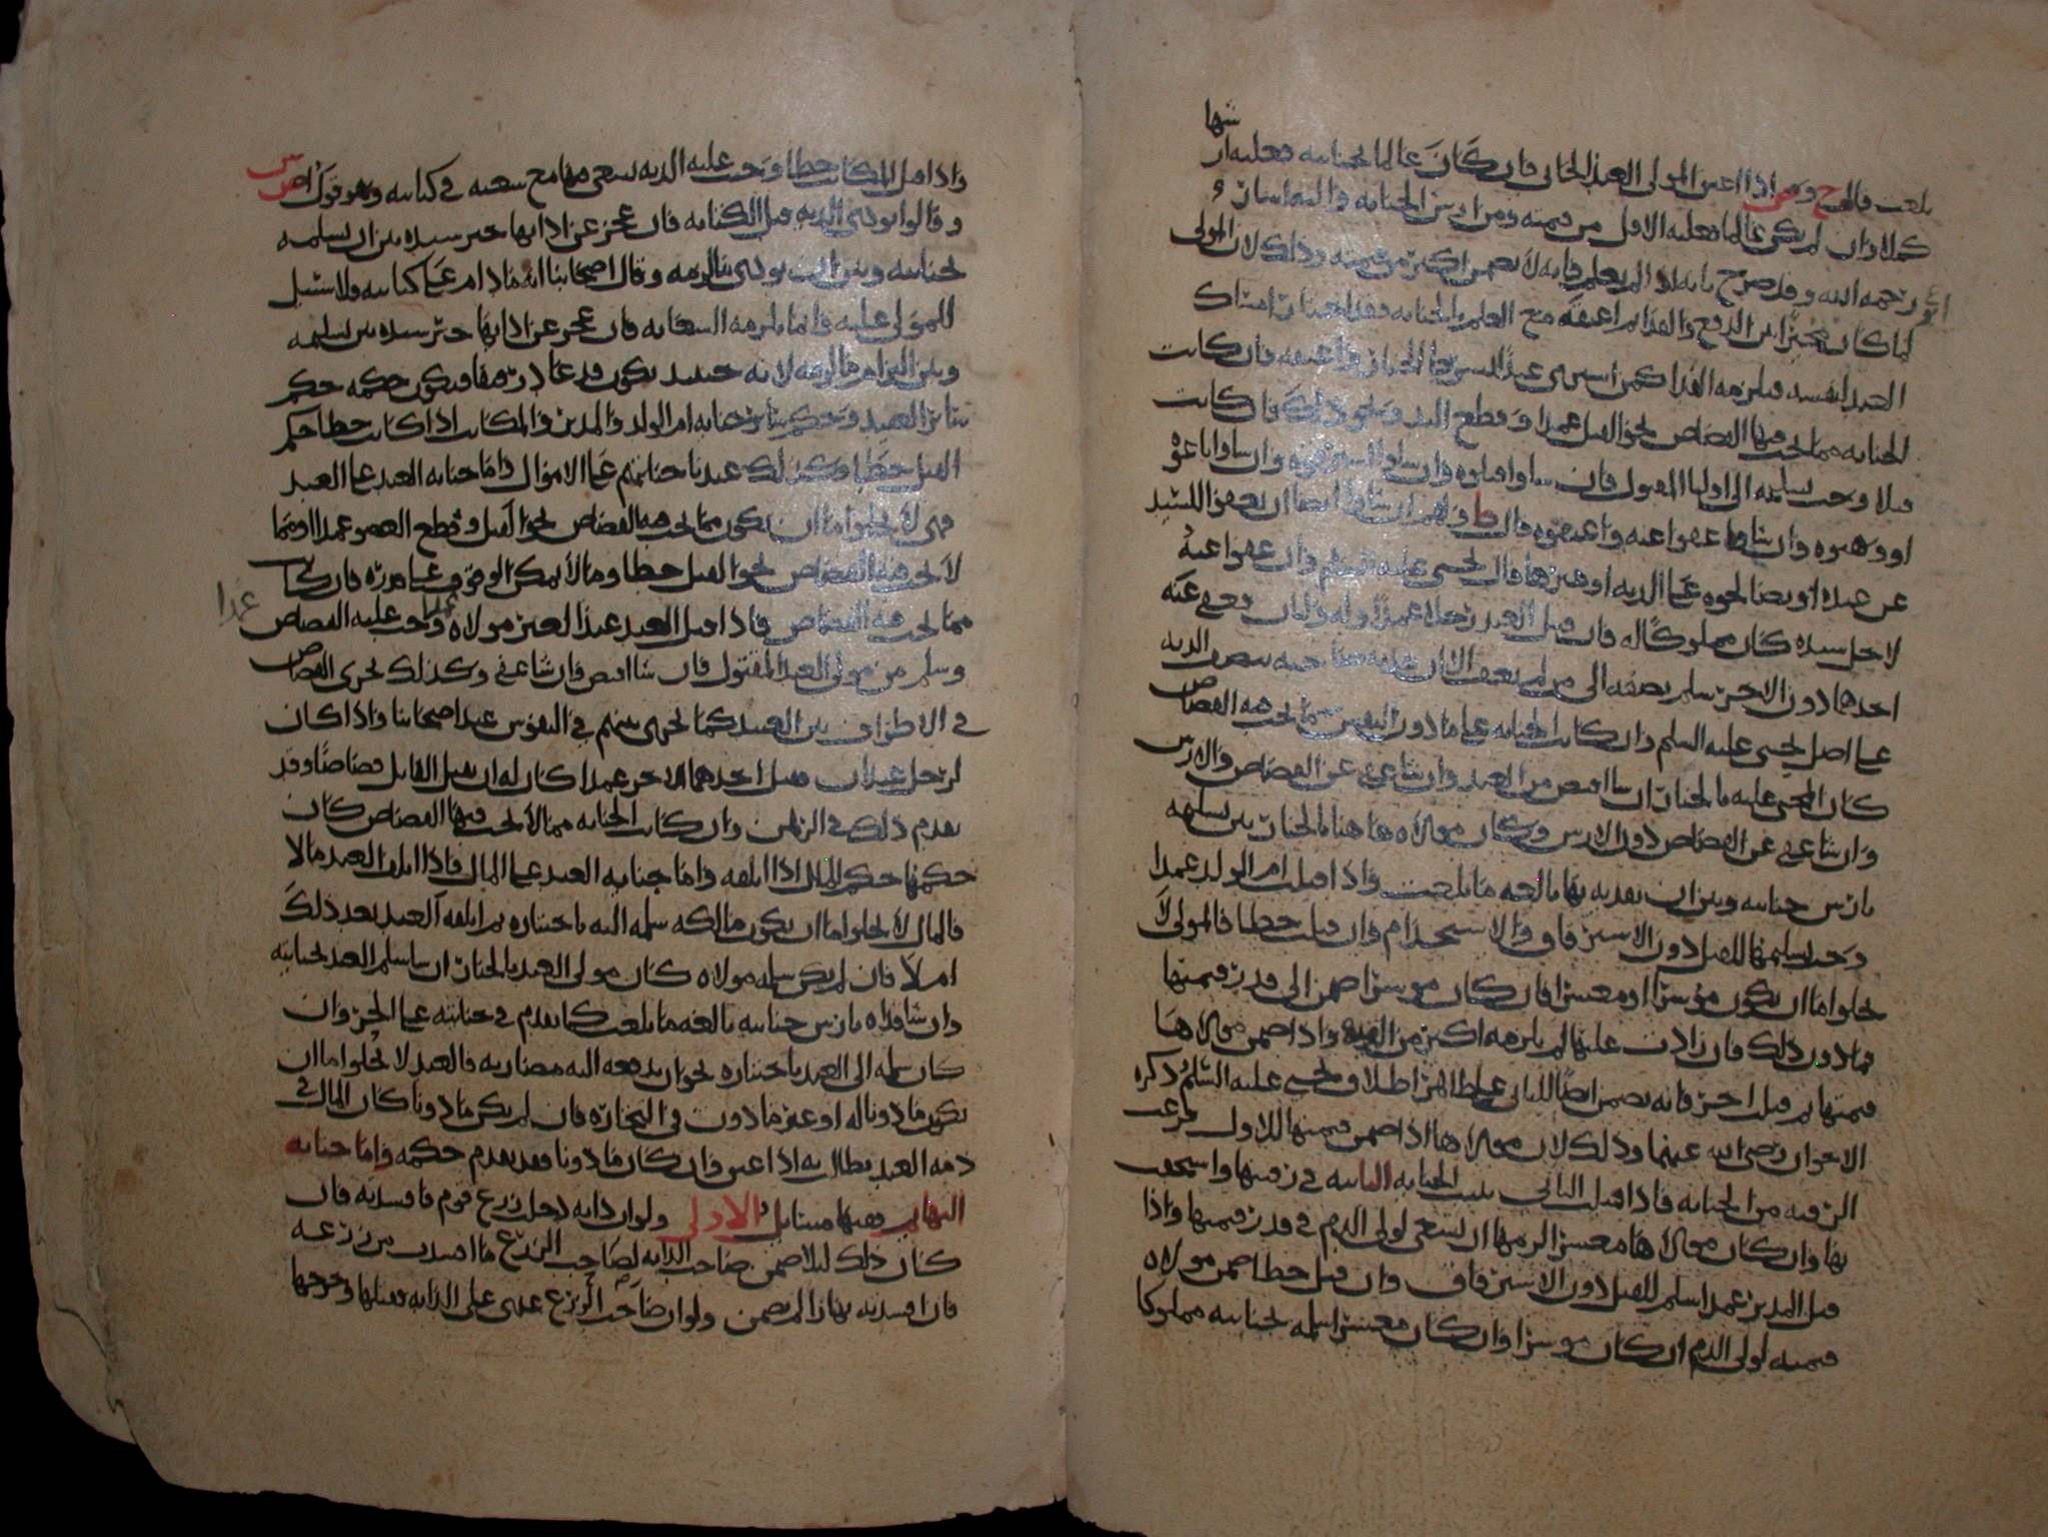 شها
بلغت قال ح و ص اذا اعتق المولى العبد الجاني فان كان عالما بجنايته فعليه ار
كملا وان لم يكن عالما فعليه الاقل من قيمته ومن ارش الجناية
رحمه الله وقد صرح بانه اذا لم يعلم فانه لا يضمن اكثر من قيمته وذلك لان المولى
لما كان مخيرا بين الدفع والفدا ثم اعتقه مع العلم بالجناية فقد اختار امساك
العبد لنفسه فيلزمه الفدا كمن اشترى عبدا بشرط الخيار واعتقه فان كانت
الجناية مما يجب فيها القصاص نحو القتل عمدا وقطع اليد ونحو ذلك فان كانت
قتلا وجب تسليمه الى اوليا المقتول فان شاوا قتلوه وان شاوا استرقوه وان شاوا باعوه
او وهبوه وان شاوا عفوا عنه واعتقوه قال ط ولهم ان شاوا ايضا ان يعفوا للسيد
عن عبده او يصالحوه على الدية او غيرها قال يحيى عليه السلم وان عفوا عنه
لاجل سيده كان مملوكا له فان قتل العبد رجلا عمدا وله وليان فعفى عنه
احدهما دون الاخر سلم بعضه الى من لم يعف الا ان يفديه صاحبه بنصف الدية
على اصل يحيى عليه السلم وان كانت الجناية على ما دون النفس مما يجب فيه القصاص
كان المجني عليه بالخيار ان شا اقتص من العبد وان شا عفى عن القصاص والارش
وان شا عفى عن القصاص دون الارش وكان مولاه هاهنا بالخيار بين تسليمه
بارش جنايته وبين ان يفديه بها بالغة ما بلغت واذا قتلت ام الولد عمدا
وجب تسليمها للقتل دون الاسترقاق والاستخدام وان قتلت خطا فالمولى لا
يخلوا اما ان يكون موسرا او معسرا فان كان موسرا ضمن الى قدر قيمتها
فما دون ذلك فان زادت عليها لم يلزمه اكثر من القيمة واذا ضمن مولاها
قيمتها ثم قتلت اخر فانه يضمن ايضا للثاني على ظاهر اطلاق يحيى عليه السلم ذكره
الاخوان رضي الله عنهما وذلك لان مولاها اذا ضمن قيمتها للاول فرغت
الرقبة من الجناية فاذا قتلت الثاني ثبتت الجناية الثانية في رقبتها واستحقت
بها وان كان مولاها معسرا لزمها ان تسعى لولي الدم في قدر قيمتها واذا
قتل المدبر عمدا سلم للقتل دون الاسترقاق وان قتل خطا ضمن مولاه
قيمته لولي الدم ان كان موسرا وان كان معسرا سلمه بجنايته مملوكا
واذا قتل المكاتب خطا وجبت عليه الدية يسعى فيها مع سعيه في كتابته وهو قول
وقالوا يودي الدية قبل الكتابة فان عجز عن ادايها خير سيده بين ان يسلمه
بجنايته وبين ان يودي ما لزمه وقال اصحابنا انه ما دام على كتابته فلا سبيل
للمولى عليه وانما يلزمه السعاية فان عجز عن ادايها خير سيده بين تسليمه
وبين التزام ما لزمه لانه حينيذ يكون قد عاد رقا فيكون حكمه حكم
سائر العبيد وحكم سائر جناية ام الولد والمدبر والمكاتب اذا كانت خطا حكم
القتل خطا وكذلك عندنا جنايتهم على الاموال واما جناية العبد على العبد
فهي لا تخلوا اما ان تكون مما يجب فيه القصاص نحو القتل وقطع العضو عمدا او مما
لا يجب فيه القصاص نحو القتل خطا وما لا يمكن الوقوف على قدره فان كانت
مما يجب فيه القصاص فاذا قتل العبد عبدا لغير مولاه عمدا وجب عليه القصاص
عمدا
وسلم من مولى العبد المقتول فان شا اقتص وان شا عفى وكذلك يجرى القصاص
في الاطراف بين العبيد كما يجرى بينهم في النفوس عند اصحابنا واذا كان
لرجل عبدان فقتل احدهما الاخر عمدا كان له ان يقتل القاتل قصاصا وقد
تقدم ذلك في الرهن وان كانت الجناية مما لا يجب فيها القصاص كان
حكمها حكم المال اذا اتلفه واما جناية العبد على المال فاذا اتلف العبد مالا
فالمال لا يخلوا اما ان يكون مالكه سلمه اليه باختياره ثم اتلفه العبد بعد ذلك
ام لا فان لم يكن سلمه مولاه كان مولى العبد بالخيار ان شا سلم العبد بجنايته
وان شا فداه بارش جنايته بالغة ما بلغت كما تقدم في جنايته على الحر وان
كان سلمه الى العبد باختياره نحو ان يدفعه اليه مضاربة فالعبد لا يخلوا اما ان
يكون ماذونا له او غير ماذون في التجارة فان لم يكن ماذونا كان المال في
ذمة العبد يطالب به اذا عتق وان كان ماذونا فقد تقدم حكمه واما جناية
البهايم ففيها مسايل الاولى ولو ان دابة دخل زرع قوم فافسدته فان
كان ذلك ليلا ضمن صاحب الدابة لصاحب الزرع ما افسدت من زرعه
فان افسدته نهارا لم يضمن ولو ان صاحب الزرع عدى على الدابة فقتلها وجرحها